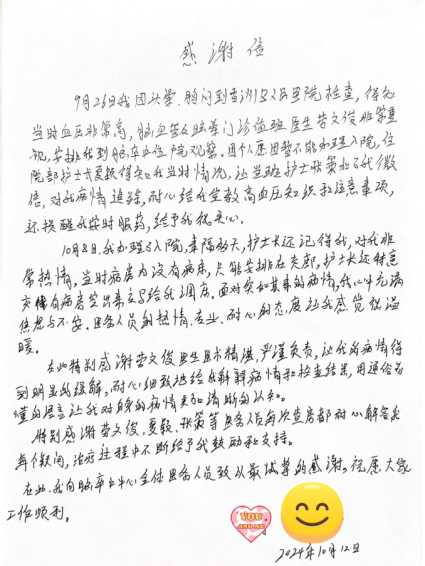 感谢信
9月26日我因头晕、胸闷到贵州医院检查，得知
当时血压非常高，脑血管及眩晕门诊值班医生劳文俊非常重
视，安排我到脑卒中住院观察。因个人原因暂不能办理入院，住
院部护士长爱敏得知我当时情况，还当班护士张策加了我微
信，对我病情追踪，耐心给我宣教高血压知识和注意事项，
还提醒我按时服药，给予我关心。
10月8日我办理了入院，事隔多天，护士长还记得我，对我非
常热情，当时病房内没有病床，只能安排在走廊，护士长还特意
交待有病房空出来立马给我调床。面对突如其来的病情，我心中充满
焦虑与不安，医务人员的热情、专业、耐心的态度让我感觉很温
暖。
在此特别感谢劳文俊医生医术精湛，严谨负责，让我的病情得
到明显的缓解，耐心细致地给我解释病情和检查结果，用通俗易
懂的语言让我对自身的病情更加清晰的认知。
特别感谢劳文俊、张策等医务人员每次查房都耐心解答我
每个疑问，治疗过程中不断给予我鼓励和支持。
在此，我向脑卒中中心全体医务人员致以最诚挚的感谢。祝愿大家
工作顺利。
YOU
AND ME
2024年10月12日